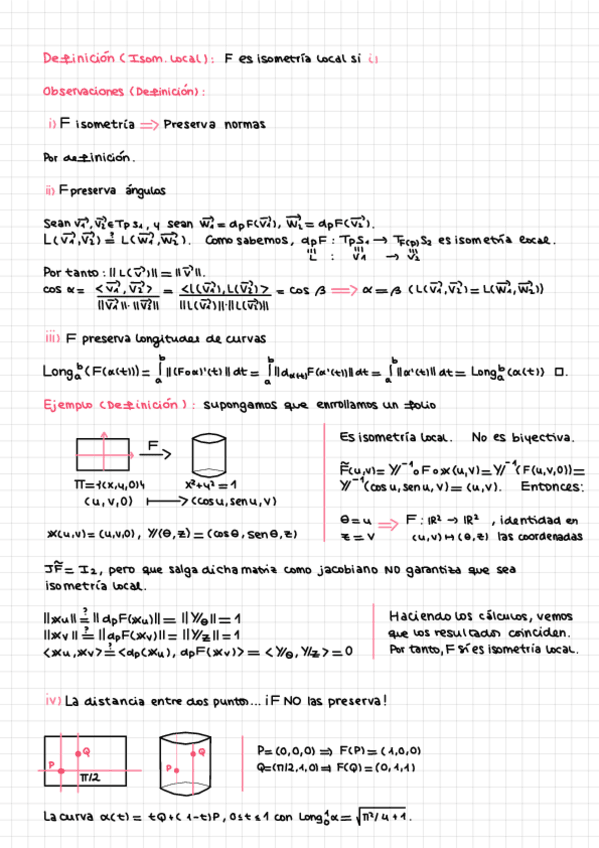 Definición (Isom. Local): F es isometría local si i)
Observaciones (Definición):
i) F isometría => Preserva normas
Por definición.
ii) F preserva ángulos
Sean v₁⃗, v₂⃗ ∈ Tp S₁, y sean w₁⃗ = dpF(v₁⃗), w₂⃗ = dpF(v₂⃗).
L(v₁⃗, v₂⃗) ≟ L(w₁⃗, w₂⃗). Como sabemos, dpF : TpS₁ → T_F(p)S₂ es isometría local.
L : V₁ → V₂
Por tanto: ||L(v⃗)|| = ||v⃗||.
cos α = <v₁⃗, v₂⃗> / ||v₁⃗||·||v₂⃗|| = <L(v₁⃗), L(v₂⃗)> / ||L(v₁⃗)||·||L(v₂⃗)|| = cos β => α = β (L(v₁⃗, v₂⃗) = L(w₁⃗, w₂⃗))
iii) F preserva longitudes de curvas
Long_a^b (F(α(t))) = ∫_a^b ||(F∘α)'(t)|| dt = ∫_a^b ||d_α(t)F(α'(t))|| dt = ∫_a^b ||α'(t)|| dt = Long_a^b (α(t)) □.
Ejemplo (Definición): Supongamos que enrollamos un folio
F
π = {(x,y,0)} x²+y² = 1
(u,v,0) ↦ (cos u, sen u, v)
𝕏(u,v) = (u,v,0), 𝕐(θ,z) = (cos θ, sen θ, z)
Es isometría local. No es biyectiva.
F̃(u,v) = 𝕐⁻¹∘F∘𝕏(u,v) = 𝕐⁻¹(F(u,v,0)) =
𝕐⁻¹(cos u, sen u, v) = (u,v). Entonces:
θ = u => F : ℝ² → ℝ², identidad en
z = v (u,v) ↦ (θ,z) las coordenadas
JF̃ = I₂, pero que salga dicha matriz como jacobiano NO garantiza que sea
isometría local.
||𝕏u|| ≟ ||dpF(𝕏u)|| = ||𝕐θ|| = 1
||𝕏v|| ≟ ||dpF(𝕏v)|| = ||𝕐z|| = 1
<𝕏u, 𝕏v> ≟ <dp(𝕏u), dpF(𝕏v)> = <𝕐θ, 𝕐z> = 0
Haciendo los cálculos, vemos
que los resultados coinciden.
Por tanto, F sí es isometría local.
iv) La distancia entre dos puntos... ¡F NO las preserva!
P Q π/2
P Q
P = (0,0,0) => F(P) = (1,0,0)
Q = (π/2,1,0) => F(Q) = (0,1,1)
La curva α(t) = tQ + (1-t)P, 0≤t≤1 con Long₀¹ α = √(π²/4 + 1).